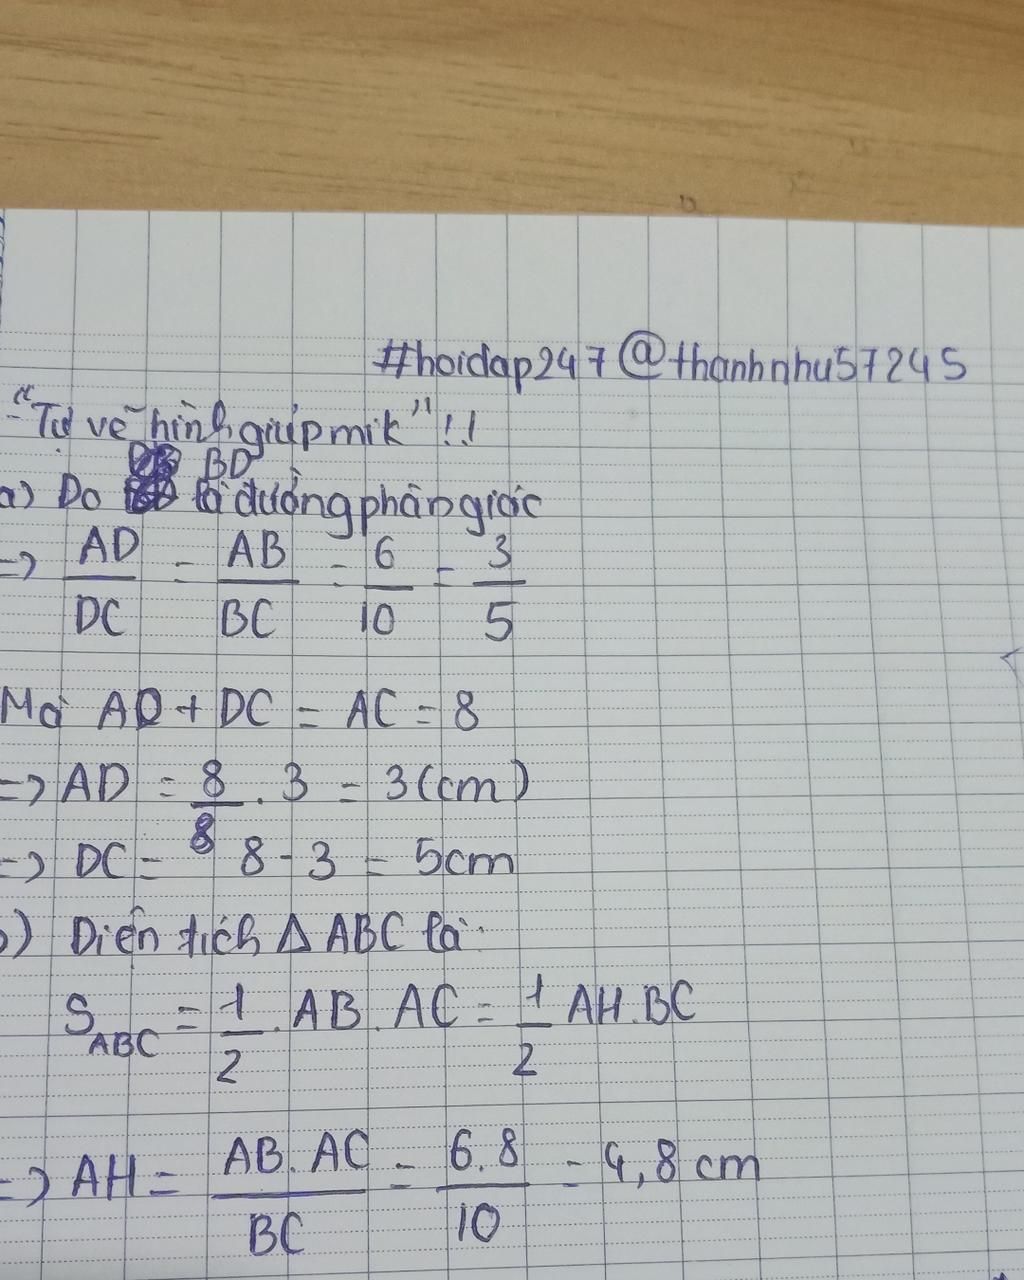 #hoidap247@thanhnhu57245
"Tự vẽ hình giúp mik"!!
a) Do BD là đường phân giác
=> AD/DC = AB/BC = 6/10 = 3/5
Mà AD + DC = AC = 8
=> AD = 8/8 . 3 = 3(cm)
=> DC = 8 - 3 = 5cm
b) Diện tích Δ ABC là:
S_ABC = 1/2 . AB . AC = 1/2 AH . BC
=> AH = AB . AC/BC = 6.8/10 = 4,8 cm